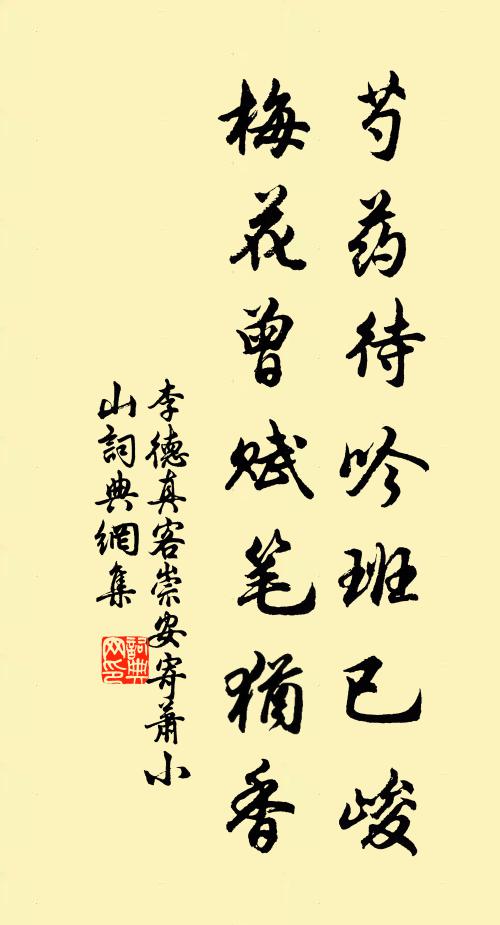 芍药待吟班已峻
梅花曾赋笔犹香
李德真客崇安寄萧小
山詞典網集
詞典
网印